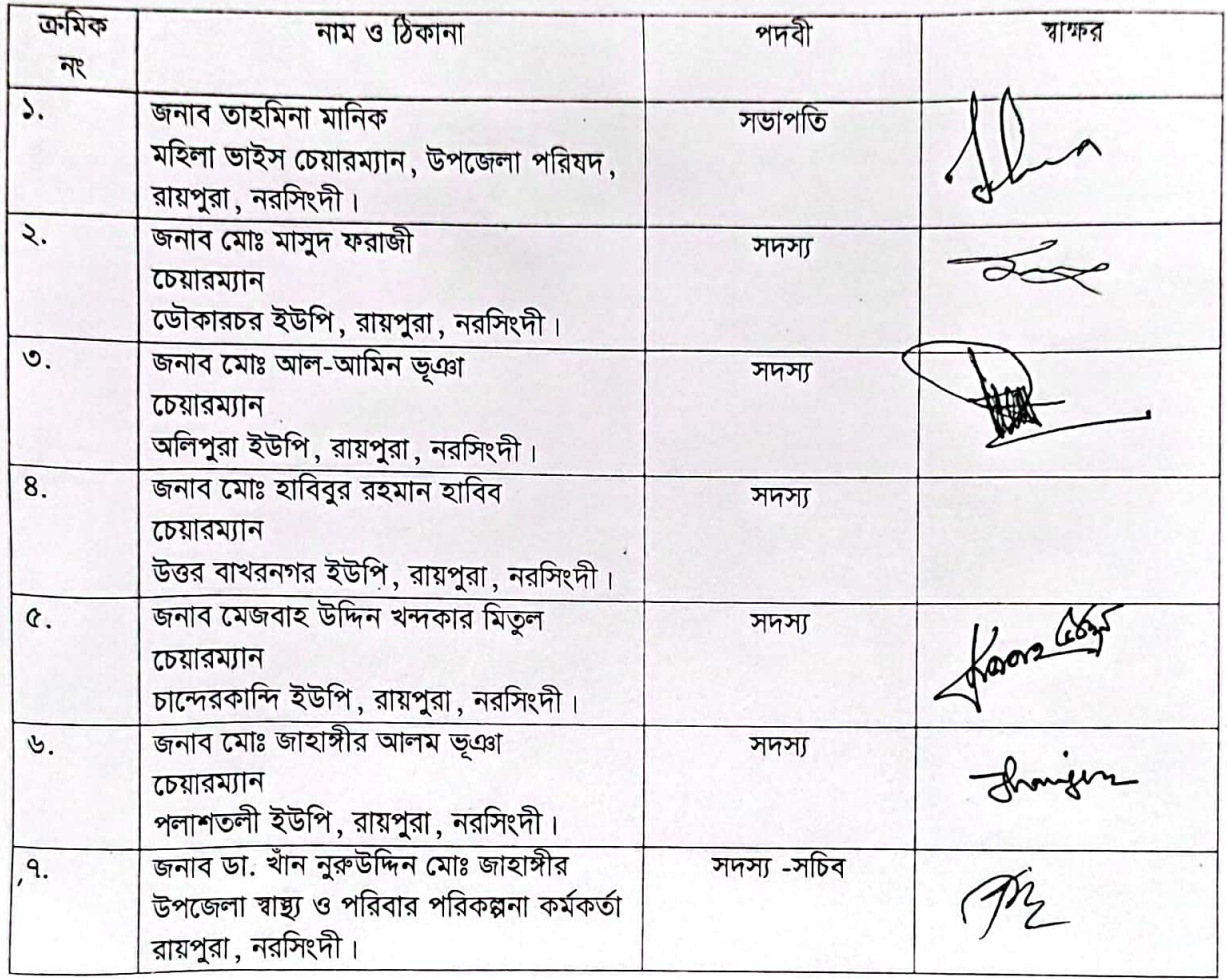 ক্রমিক নং	নাম ও ঠিকানা	পদবী	স্বাক্ষর
১.	জনাব তাহমিনা মানিক	সভাপতি
মহিলা ভাইস চেয়ারম্যান, উপজেলা পরিষদ,
রায়পুরা, নরসিংদী।
২.	জনাব মোঃ মাসুদ ফরাজী	সদস্য
চেয়ারম্যান
ডৌকারচর ইউপি, রায়পুরা, নরসিংদী।
৩.	জনাব মোঃ আল-আমিন ভূঞা	সদস্য
চেয়ারম্যান
অলিপুরা ইউপি, রায়পুরা, নরসিংদী।
৪.	জনাব মোঃ হাবিবুর রহমান হাবিব	সদস্য
চেয়ারম্যান
উত্তর বাখরনগর ইউপি, রায়পুরা, নরসিংদী।
৫.	জনাব মেজবাহ উদ্দিন খন্দকার মিতুল	সদস্য
চেয়ারম্যান
চান্দেরকান্দি ইউপি, রায়পুরা, নরসিংদী।
৬.	জনাব মোঃ জাহাঙ্গীর আলম ভূঞা	সদস্য
চেয়ারম্যান
পলাশতলী ইউপি, রায়পুরা, নরসিংদী।
৭.	জনাব ডা. খাঁন নুরুউদ্দিন মোঃ জাহাঙ্গীর	সদস্য -সচিব
উপজেলা স্বাস্থ্য ও পরিবার পরিকল্পনা কর্মকর্তা
রায়পুরা, নরসিংদী।